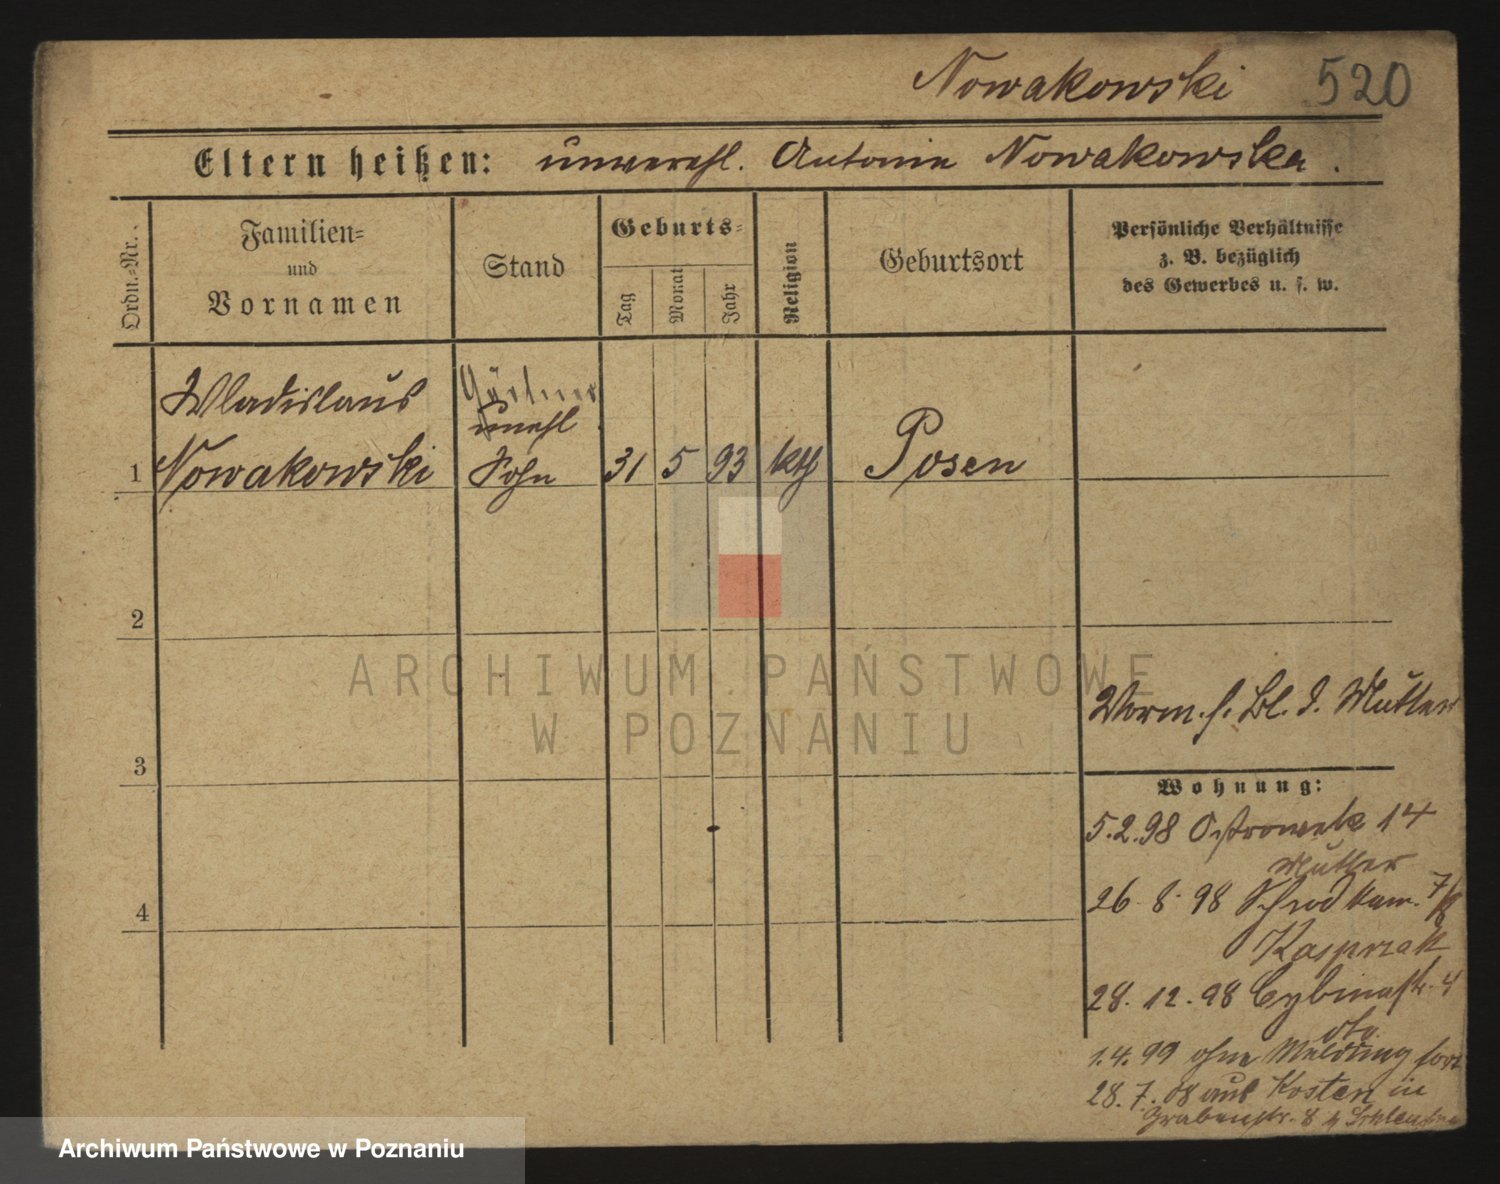 Nowakowski 520
Eltern heißen: unverehl. Antonie Nowakowska.
Ordn.-Nr.
Familien-
und
Vornamen
Stand
Geburts-
Tag
Monat
Jahr
Religion
Geburtsort
Persönliche Verhältnisse
z. B. bezüglich
des Gewerbes u. s. w.
Wladislaus
Gärtner
unehl
1 Nowakowski Sohn 31 5 93 kth Posen
2
ARCHIWUM PAŃSTWOWE
W POZNANIU
Verm. s. Bl. d. Mutter
3
Wohnung:
5.2.98 Ostrowek 14
Mutter
26.8.98 Schrodkam. 7/8
4
Kasprzak
28.12.98 Cybinastr. 4
1.4.99 ohne Meldung fort
28.7.08 aus Kosten in
Grabenstr. 8 b
Archiwum Państwowe w Poznaniu